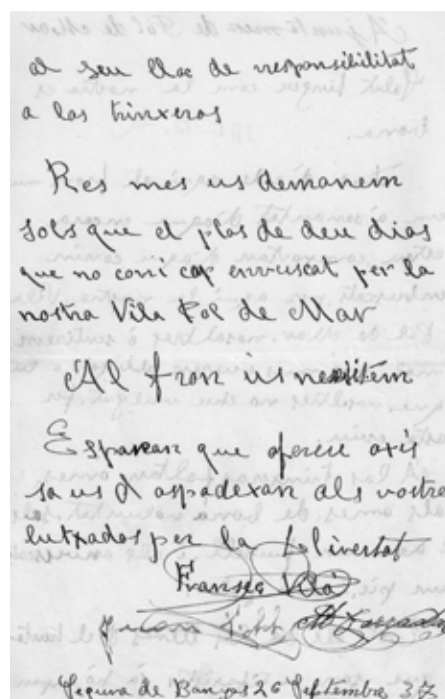 al seu lloc de responsibilitat
a las trinxeras
Res mes us demanem
sols que el plas de deu dias
que no corri cap emvuscat per la
nostra Vila Pol de Mar
Al fron us nesitem
Esparan que aferse axis
sa us d aspadexan als vostre
lutxados per la llivertat
Fransec Vilá
Segura de Banyas 26 Septembre 37